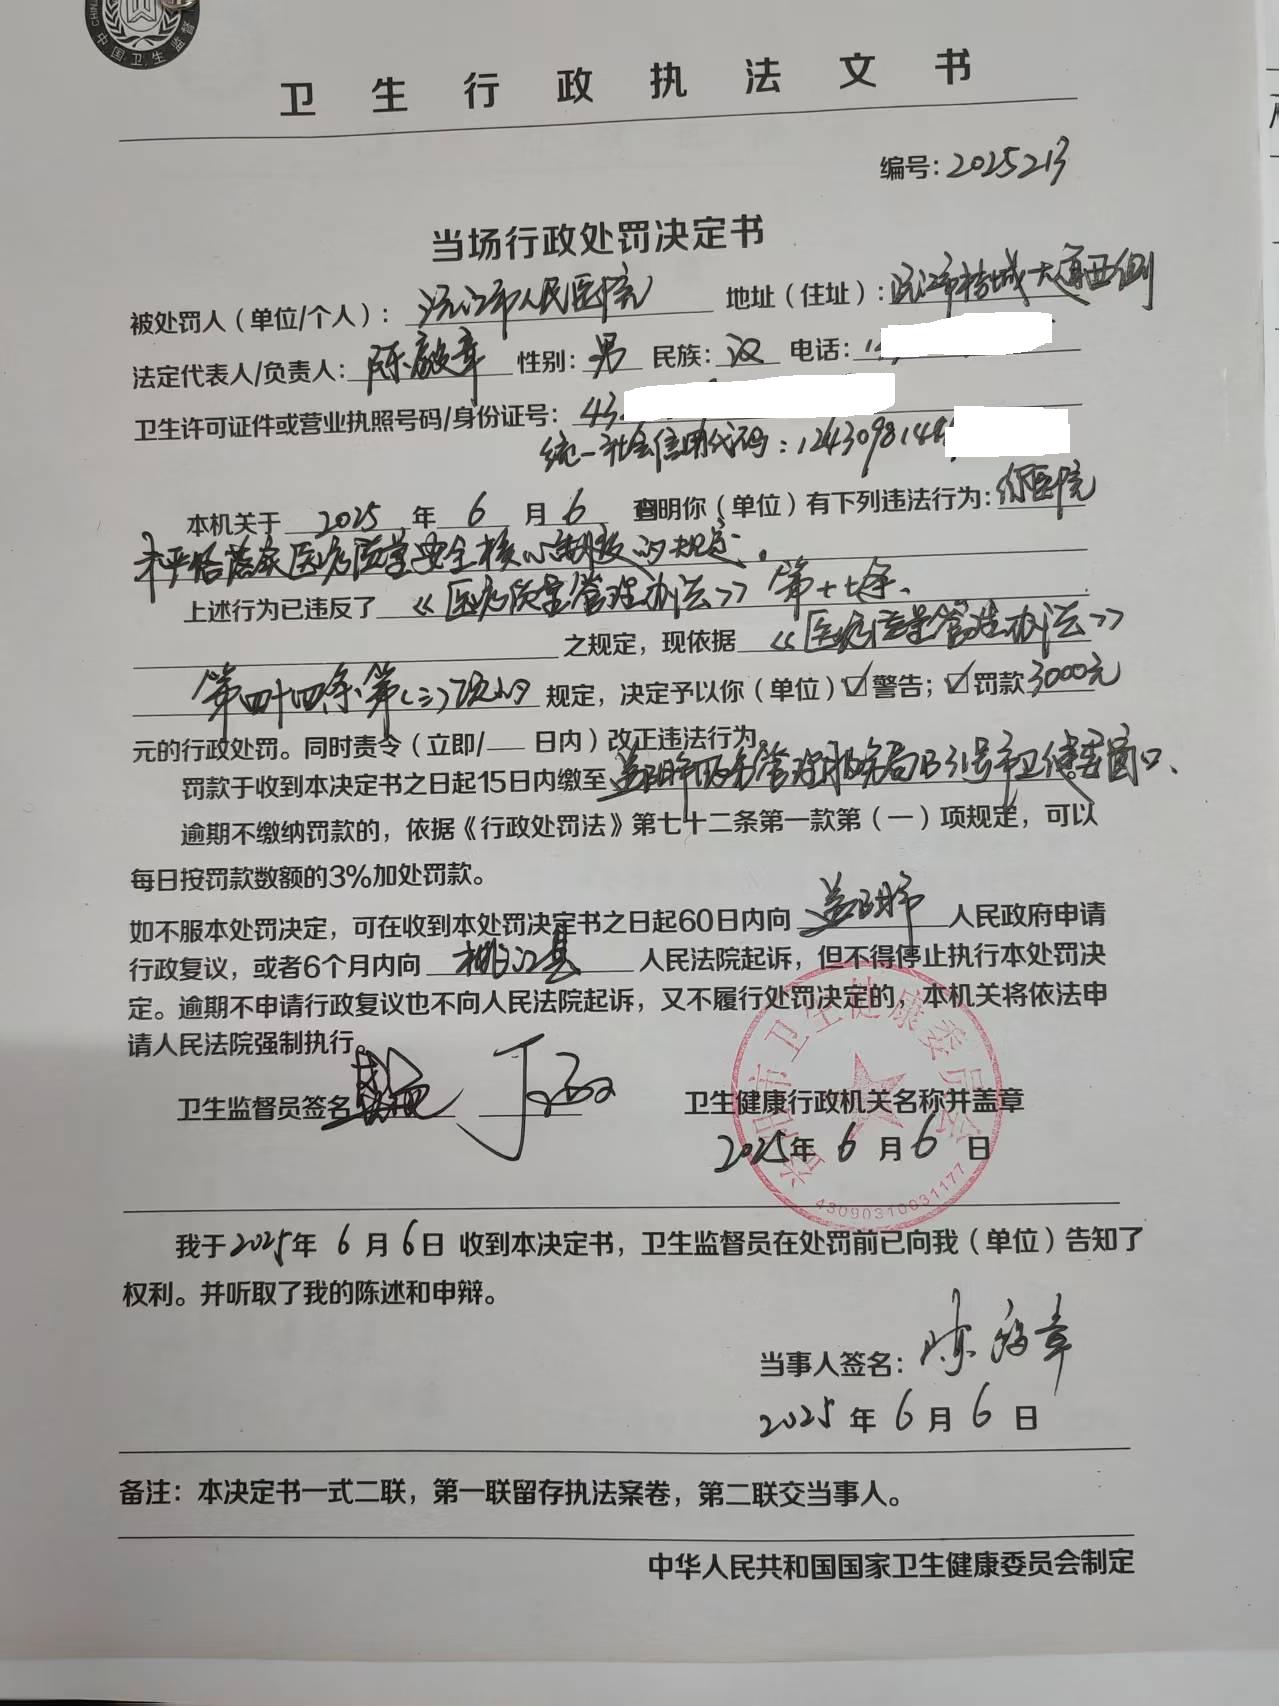 中国卫生监督
卫生行政执法文书
编号：2025213
当场行政处罚决定书
被处罚人（单位/个人）：沅江市人民医院 地址（住址）：沅江市桔城大道西侧
法定代表人/负责人：陈毅章 性别：男 民族：汉 电话：1
卫生许可证件或营业执照号码/身份证号：43
统一社会信用代码：12430981448
本机关于 2025 年 6 月 6 查明你（单位）有下列违法行为：你医院
未严格落实医疗质量安全核心制度的规定。
上述行为已违反了《医疗质量管理办法》第十七条、
之规定，现依据《医疗质量管理办法》
第四十四条第（三）项的规定，决定予以你（单位）☑警告；☑罚款3000元
元的行政处罚。同时责令（立即/ 日内）改正违法行为。
罚款于收到本决定书之日起15日内缴至益阳市政务管理服务局B31号市卫健委窗口、
逾期不缴纳罚款的，依据《行政处罚法》第七十二条第一款第（一）项规定，可以
每日按罚款数额的3%加处罚款。
如不服本处罚决定，可在收到本处罚决定书之日起60日内向 益阳市 人民政府申请
行政复议，或者6个月内向 桃江县 人民法院起诉，但不得停止执行本处罚决
定。逾期不申请行政复议也不向人民法院起诉，又不履行处罚决定的，本机关将依法申
请人民法院强制执行。
卫生监督员签名 卫生健康行政机关名称并盖章
益阳市卫生健康委员会
2025年 6 月 6 日
43090310031177
我于2025年 6 月 6日 收到本决定书，卫生监督员在处罚前已向我（单位）告知了
权利。并听取了我的陈述和申辩。
当事人签名：陈毅章
2025 年 6 月 6 日
备注：本决定书一式二联，第一联留存执法案卷，第二联交当事人。
中华人民共和国国家卫生健康委员会制定